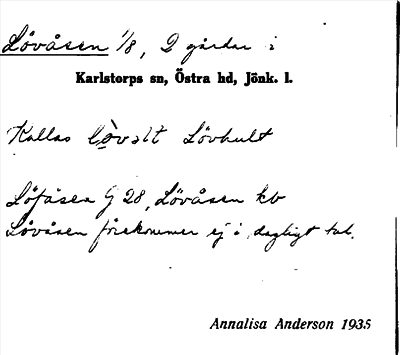 Lövåsen 1/8, 2 gårdar i
Karlstorps sn, Östra hd, Jönk. l.
Kallas lòvəlt Lövhult
Löfåsen G 28, Lövåsen kb
Lövåsen förekommer ej i dagligt tal.
Annalisa Anderson 1935